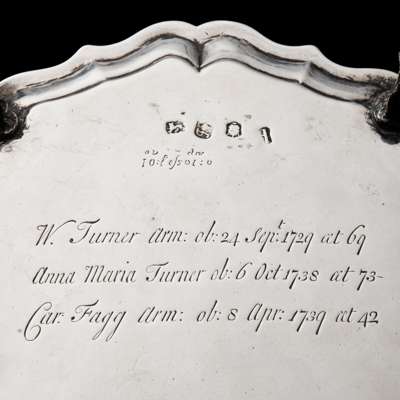 W. Turner Arm: ob: 24 Sept: 1729 æt 69
Anna Maria Turner ob: 6 Oct 1738 æt 73-
Car: Fagg Arm: ob: 8 Apr: 1739 æt 42